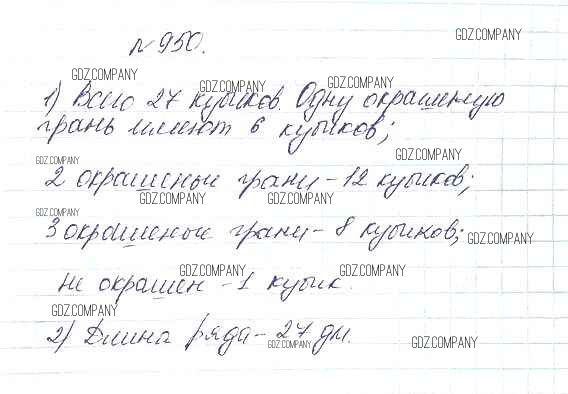 №950.
GDZ.COMPANY
GDZ.COMPANY
GDZ.COMPANY
GDZ.COMPANY
1) Всего 27 кубиков. Одну окрашенную
грань имеют 6 кубиков;
GDZ.COMPANY
GDZ.COMPANY
2 окрашеные грани - 12 кубиков;
GDZ.COMPANY
GDZ.COMPANY
GDZ.COMPANY
3 окрашеные грани - 8 кубиков;
GDZ.COMPANY
GDZ.COMPANY
GDZ.COMPANY
не окрашен - 1 кубик.
GDZ.COMPANY
2) Длина ряда - 27 дм.
GDZ.COMPANY
GDZ.COMPANY